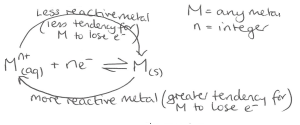 Less reactive metal
(less tendency for
M to lose e⁻)
M = any metal
n = integer
Mⁿ⁺(aq) + ne⁻ ⇌ M(s)
more reactive metal (greater tendency for
M to lose e⁻)